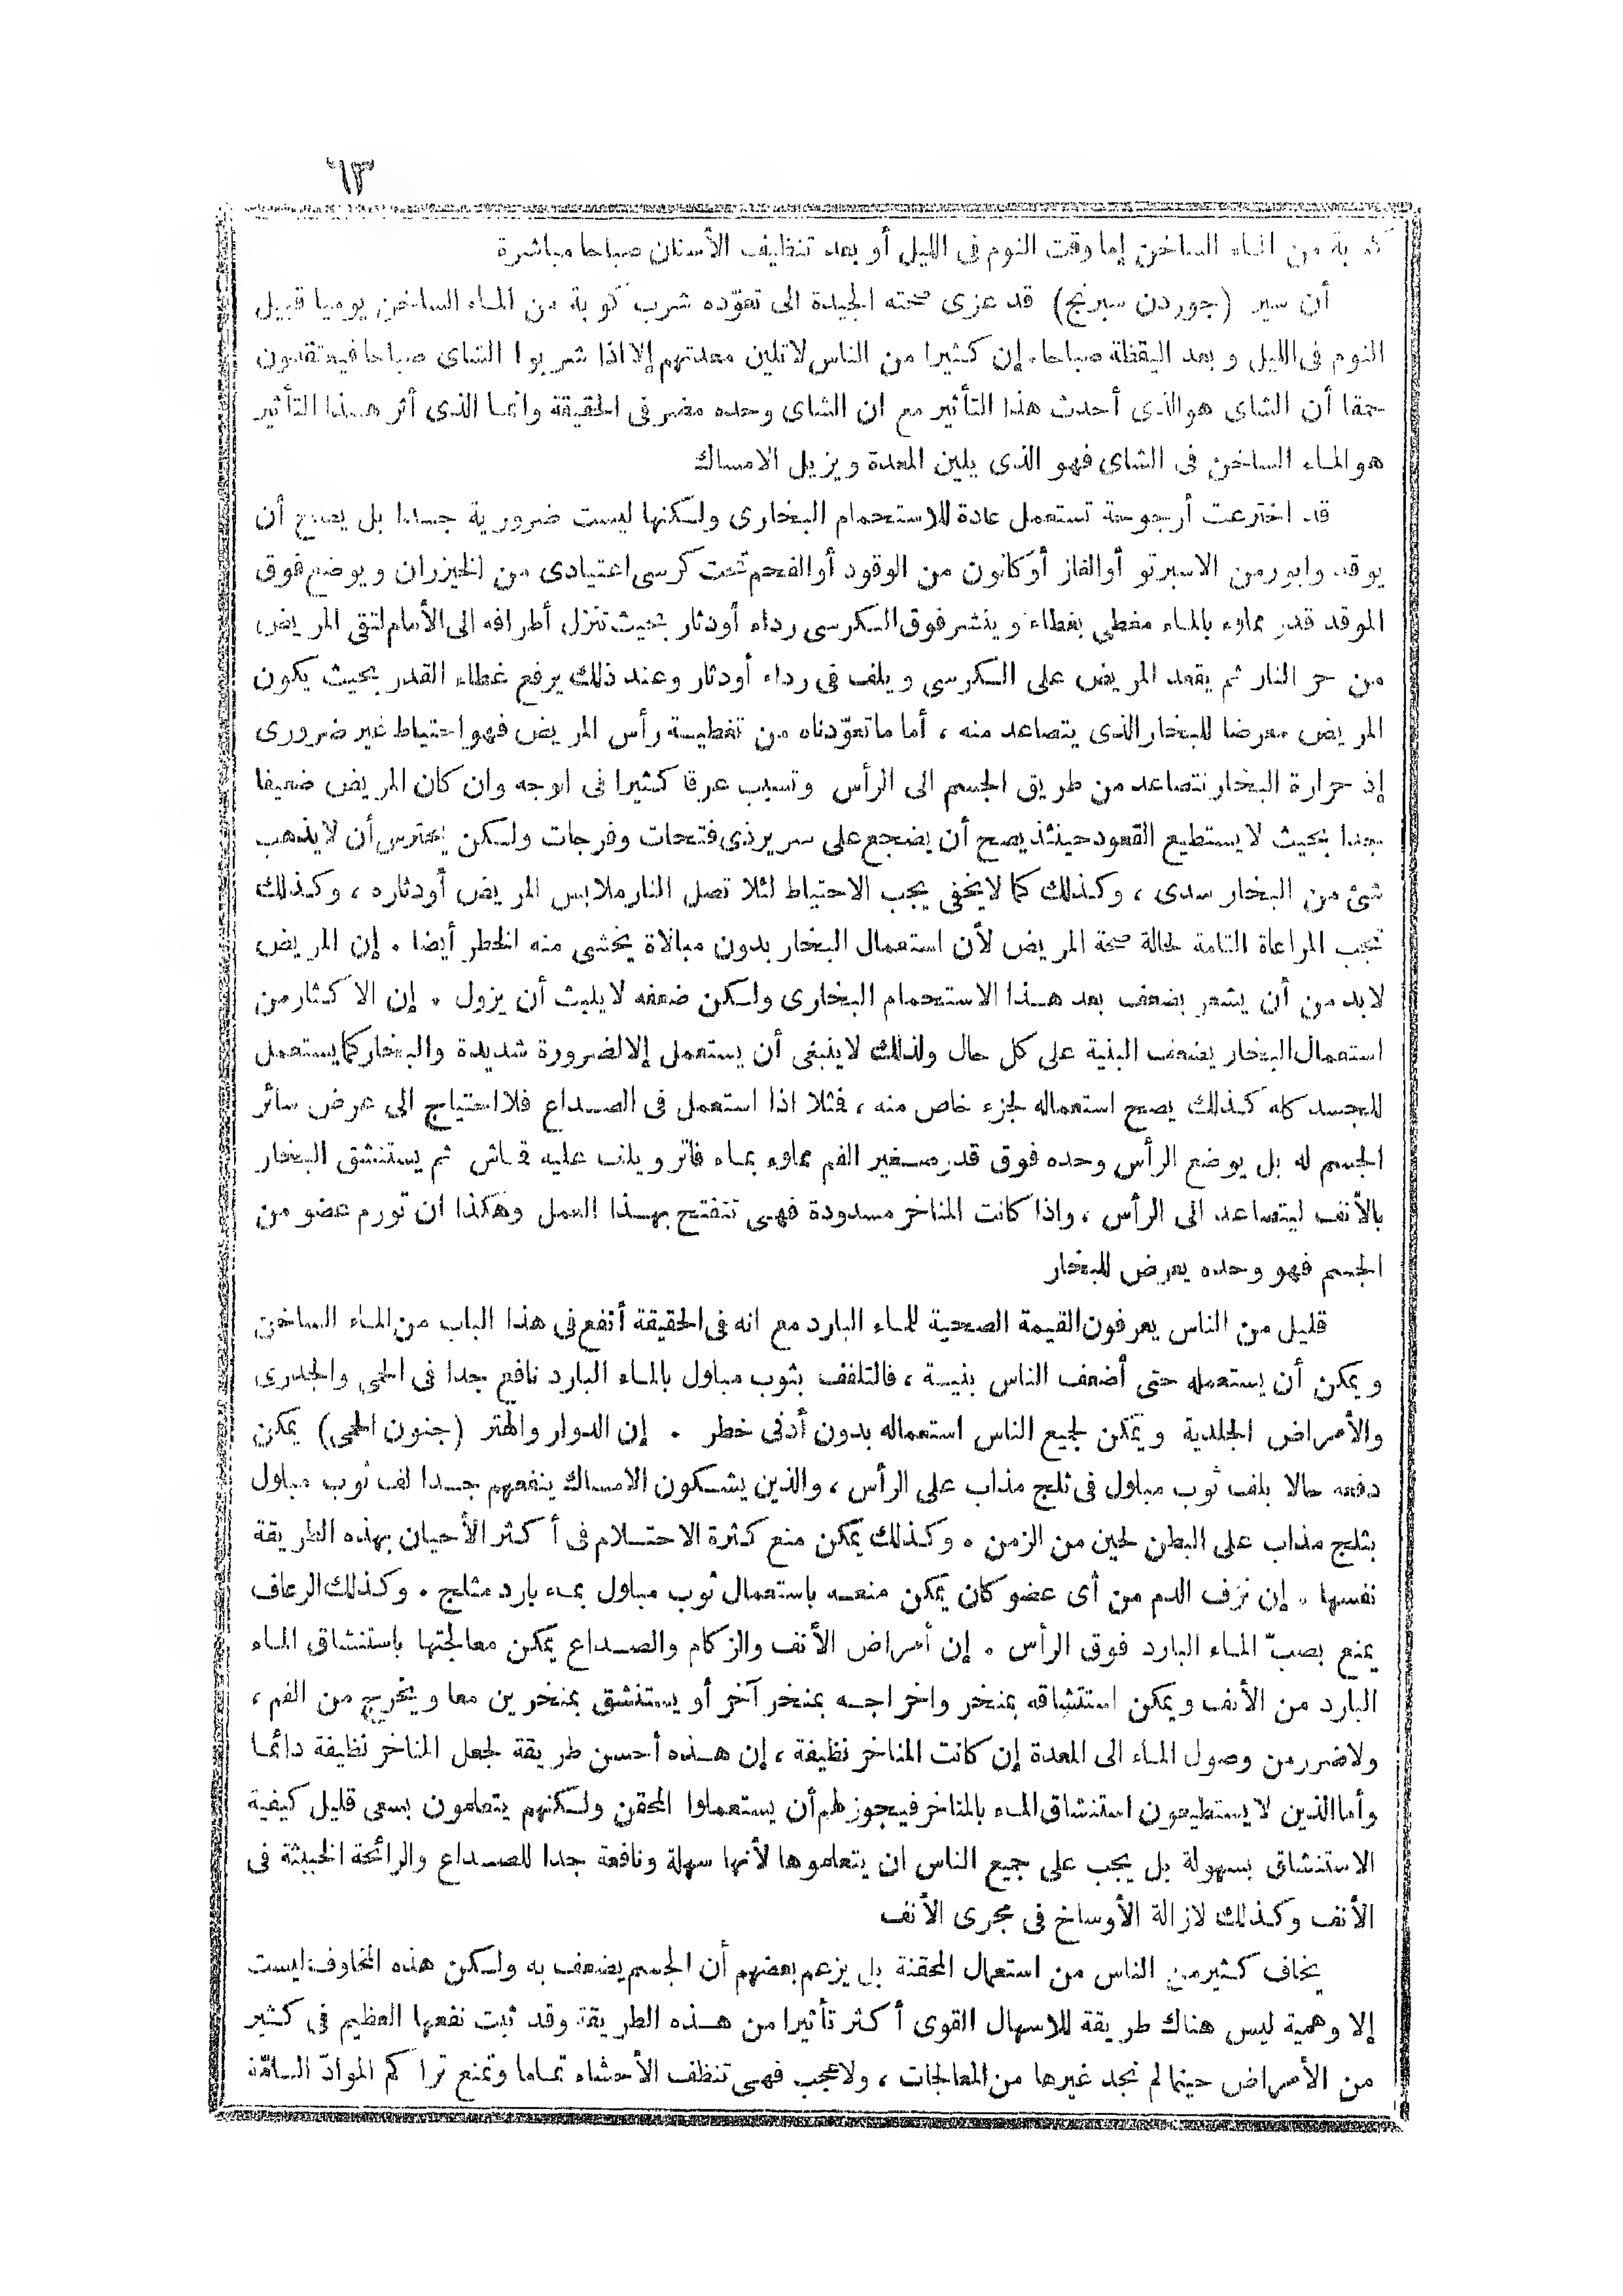 ٦٣
كوبة من الماء الساخن إما وقت النوم فى الليل أو بعد تنظيف الأسنان صباحا مباشرة
أن سير (جوردن سبرنج) قد عزى صحته الجيدة الى تعوّده شرب كوبة من الماء الساخن يوميا قبيل
النوم فى الليل وبعد اليقظة صباحا. إن كثيرا من الناس لا تلين معدتهم إلا اذا شربوا الشاى صباحا فيعتقدون
حقا أن الشاى هو الذى أحدث هذا التأثير مع ان الشاى وحده مضر فى الحقيقة وانما الذى أثر هذا التأثير
هو الماء الساخن فى الشاى فهو الذى يلين المعدة ويزيل الامساك
قد اخترعت أرجوحة تستعمل عادة للاستحمام البخارى ولكنها ليست ضرورية جدا بل يصح أن
يوقد وابور من الاسبرتو أو الغاز أو كانون من الوقود أو الفحم تحت كرسى اعتيادى من الخيزران ويوضع فوق
الموقد قدر مملوء بالماء مغطى بغطاء وينشر فوق الكرسى رداء أو دثار بحيث تنزل أطرافه الى الأمام لتقى المريض
من حر النار ثم يقعد المريض على الكرسى ويلف فى رداء أو دثار وعند ذلك يرفع غطاء القدر بحيث يكون
المريض معرضا للبخار الذى يتصاعد منه ، أما ما تعوّدناه من تغطية رأس المريض فهو احتياط غير ضرورى
إذ حرارة البخار تتصاعد من طريق الجسم الى الرأس وتسبب عرقا كثيرا فى الوجه وان كان المريض ضعيفا
جدا بحيث لا يستطيع القعود حينئذ يصح أن يضجع على سرير ذى فتحات وفرجات ولكن يحترس أن لا يذهب
شئ من البخار سدى ، وكذلك كما لا يخفى يجب الاحتياط لئلا تصل النار ملابس المريض أو دثاره ، وكذلك
تجب المراعاة التامة لحالة صحة المريض لأن استعمال البخار بدون مبالاة يخشى منه الخطر أيضا . إن المريض
لا بد من أن يشعر بضعف بعد هذا الاستحمام البخارى ولكن ضعفه لا يلبث أن يزول . إن الاكثار من
استعمال البخار يضعف البنية على كل حال ولذلك لا ينبغى أن يستعمل إلا لضرورة شديدة والبخار كما يستعمل
للجسد كله كذلك يصح استعماله لجزء خاص منه ، فمثلا اذا استعمل فى الصداع فلا احتياج الى عرض سائر
الجسم له بل يوضع الرأس وحده فوق قدر صغير الفم مملوء بماء فاتر ويلف عليه قماش ثم يستنشق البخار
بالأنف ليتصاعد الى الرأس ، واذا كانت المناخر مسدودة فهى تنفتح بهذا العمل وهكذا ان تورم عضو من
الجسم فهو وحده يعرض للبخار
قليل من الناس يعرفون القيمة الصحية للماء البارد مع انه فى الحقيقة أنفع فى هذا الباب من الماء الساخن
ويمكن أن يستعمله حتى أضعف الناس بنية ، فالتلفف بثوب مبلول بالماء البارد نافع جدا فى الحمى والجدرى
والأمراض الجلدية ويمكن لجميع الناس استعماله بدون أدنى خطر . إن الدوار والهتر (جنون الحمى) يمكن
دفعه حالا بلف ثوب مبلول فى ثلج مذاب على الرأس ، والذين يشكون الامساك ينفعهم جدا لف ثوب مبلول
بثلج مذاب على البطن لحين من الزمن . وكذلك يمكن منع كثرة الاحتلام فى أكثر الأحيان بهذه الطريقة
نفسها . إن نزف الدم من أى عضو كان يمكن منعه باستعمال ثوب مبلول بماء بارد مثلج . وكذلك الرعاف
يمنع بصبّ الماء البارد فوق الرأس . إن أمراض الأنف والزكام والصداع يمكن معالجتها باستنشاق الماء
البارد من الأنف ويمكن استنشاقه بمنخر واخراجه بمنخر آخر أو يستنشق بمنخرين معا ويخرج من الفم ،
ولا ضرر من وصول الماء الى المعدة إن كانت المناخر نظيفة ، إن هذه أحسن طريقة لجعل المناخر نظيفة دائما
وأما الذين لا يستطيعون استنشاق الماء بالمناخر فيجوز لهم أن يستعملوا المحقن ولكنهم يتعلمون بسعى قليل كيفية
الاستنشاق بسهولة بل يجب على جميع الناس ان يتعلموها لأنها سهلة ونافعة جدا للصداع والرائحة الخبيثة فى
الأنف وكذلك لازالة الأوساخ فى مجرى الأنف
يخاف كثير من الناس من استعمال المحقنة بل يزعم بعضهم أن الجسم يضعف به ولكن هذه المخاوف ليست
إلا وهمية ليس هناك طريقة للاسهال القوى أكثر تأثيرا من هذه الطريقة وقد ثبت نفعها العظيم فى كثير
من الأمراض حينما لم نجد غيرها من المعالجات ، ولا عجب فهى تنظف الأحشاء تماما وتمنع تراكم الموادّ السامّة